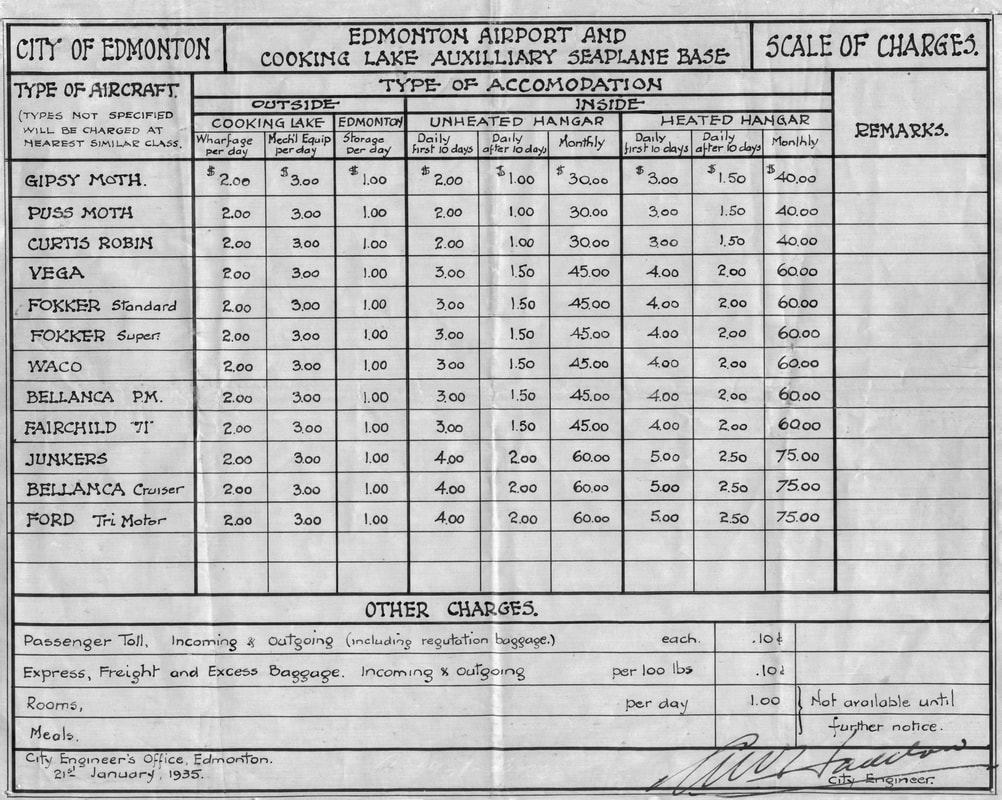 CITY OF EDMONTON
EDMONTON AIRPORT AND
COOKING LAKE AUXILLIARY SEAPLANE BASE
SCALE OF CHARGES.
TYPE OF AIRCRAFT.
(TYPES NOT SPECIFIED
WILL BE CHARGED AT
NEAREST SIMILAR CLASS.
TYPE OF ACCOMODATION
OUTSIDE INSIDE
COOKING LAKE EDMONTON UNHEATED HANGAR HEATED HANGAR
Wharfage per day Mech'l Equip per day Storage per day Daily first 10 days Daily after 10 days Monthly Daily first 10 days Daily after 10 days Monthly
REMARKS.
GIPSY MOTH. $2.00 $3.00 $1.00 $2.00 $1.00 $30.00 $3.00 $1.50 $40.00
PUSS MOTH 2.00 3.00 1.00 2.00 1.00 30.00 3.00 1.50 40.00
CURTIS ROBIN 2.00 3.00 1.00 2.00 1.00 30.00 3.00 1.50 40.00
VEGA 2.00 3.00 1.00 3.00 1.50 45.00 4.00 2.00 60.00
FOKKER Standard 2.00 3.00 1.00 3.00 1.50 45.00 4.00 2.00 60.00
FOKKER Super. 2.00 3.00 1.00 3.00 1.50 45.00 4.00 2.00 60.00
WACO 2.00 3.00 1.00 3.00 1.50 45.00 4.00 2.00 60.00
BELLANCA P.M. 2.00 3.00 1.00 3.00 1.50 45.00 4.00 2.00 60.00
FAIRCHILD "71" 2.00 3.00 1.00 3.00 1.50 45.00 4.00 2.00 60.00
JUNKERS 2.00 3.00 1.00 4.00 2.00 60.00 5.00 2.50 75.00
BELLANCA Cruiser 2.00 3.00 1.00 4.00 2.00 60.00 5.00 2.50 75.00
FORD Tri Motor 2.00 3.00 1.00 4.00 2.00 60.00 5.00 2.50 75.00
OTHER CHARGES.
Passenger Toll, Incoming & Outgoing (including regulation baggage.) each. .10¢
Express, Freight and Excess Baggage. Incoming & Outgoing per 100 lbs .10¢
Rooms, per day 1.00 Not available until
Meals. further notice.
City Engineer's Office, Edmonton.
21st January, 1935.
City Engineer.